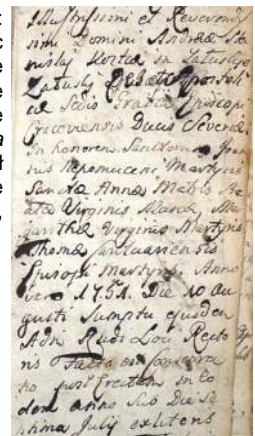 Illustrissimi et Reverendis
simi Domini Andreæ Sta
nislai Kostka in Załuskie
Załuski Dei et Apostoli
cæ Sedis Gratia Episcopi
Cracoviensis Ducis Severiæ
In honorem Sanctorum Joan
nis Nepomuceni Martyris
Sanctæ Annæ Matris Be
atæ Virginis Mariæ Mar
garithæ Virginis Martyris
Thomæ Cantuariensis
Episcopi Martyris. Anno
vero 1751. Die 10 Au
gusti Sumptu ejusdem
Adm Rndi Loci Recto
ris Facta est consecra
tio post Erectam in eo
dem anno suo Die Se
ptima Julij existens